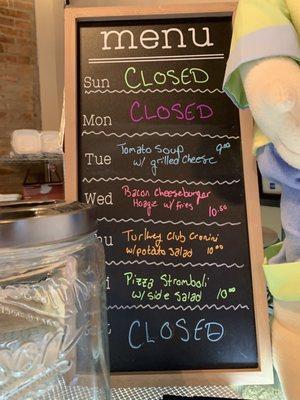 menu
Sun CLOSED
Mon CLOSED
Tue Tomato Soup 9.00
w/ grilled cheese
Wed Bacon Cheeseburger
Hoagie w/ fries 10.50
Turkey Club Cronini
w/ potato salad 10.00
Pizza Stromboli
w/ side salad 10.00
CLOSED